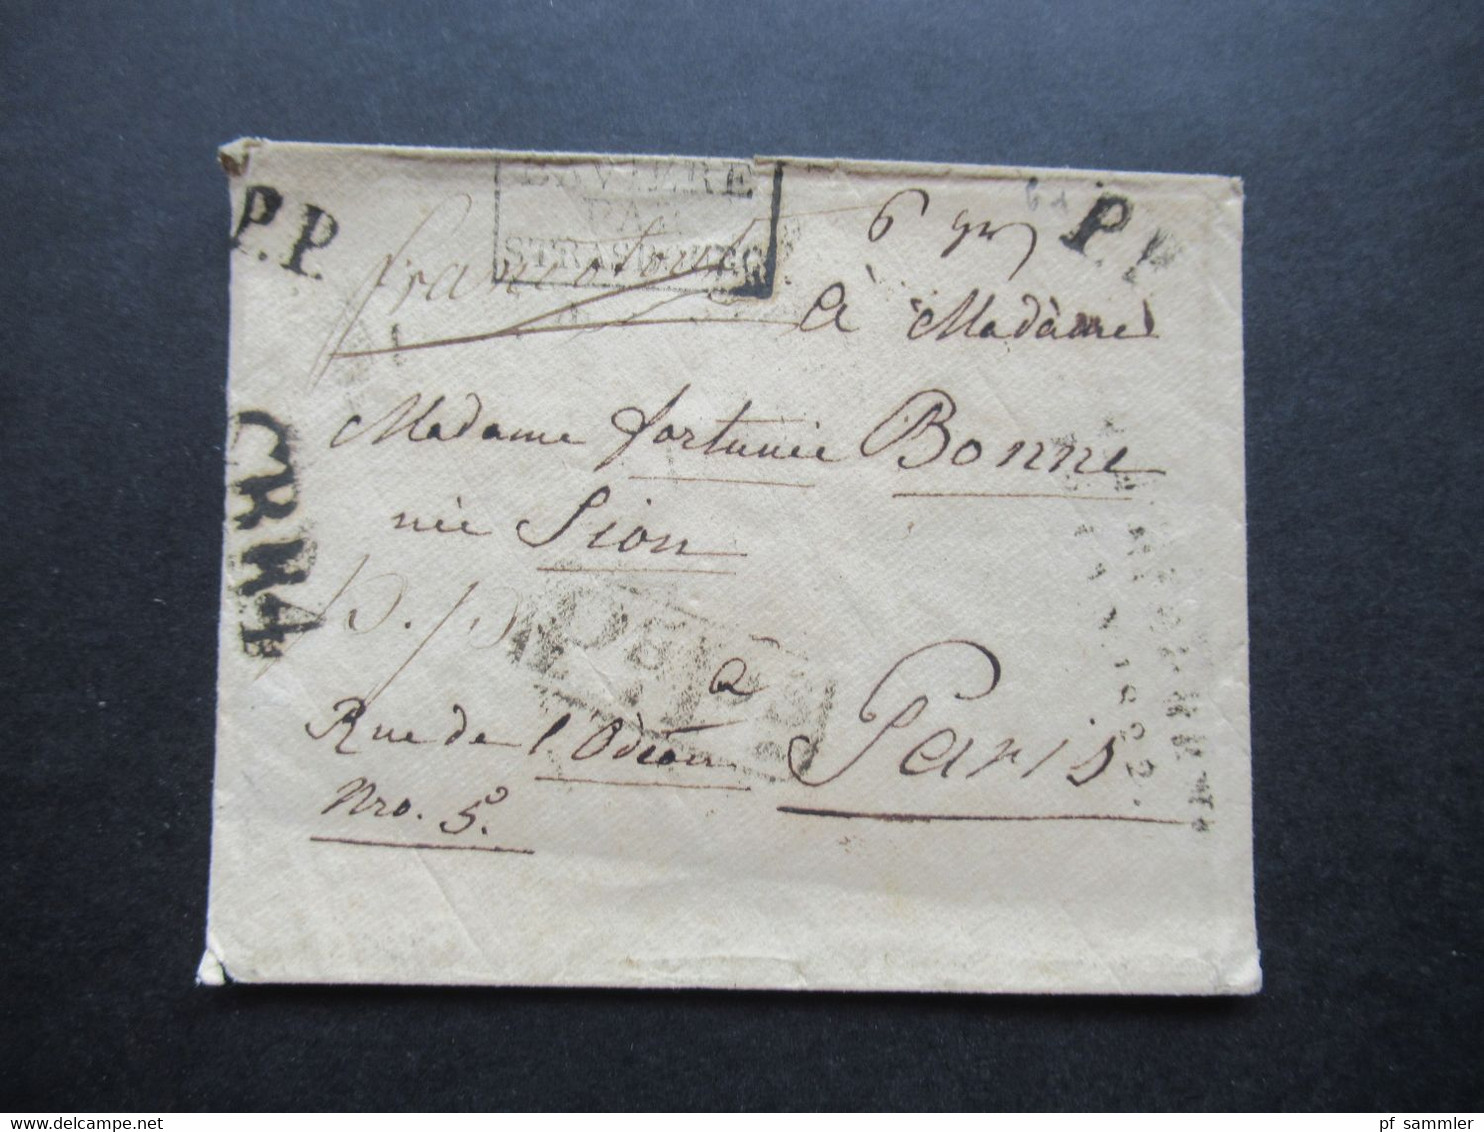 BAVIERE
PAR
STRASBOURG
P.P.
P.P.
franco tout
6 gr
à Madame
Madame fortunée Bonne
née Sion
C.R.R.4
p. p.
à
Rue de l'Odéon Paris
Nro. 5.
pf sammler